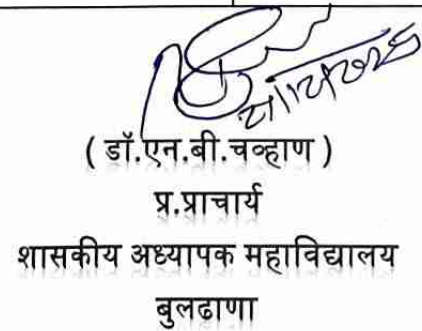 ( डॉ.एन.बी.चव्हाण )
प्र.प्राचार्य
शासकीय अध्यापक महाविद्यालय
बुलढाणा